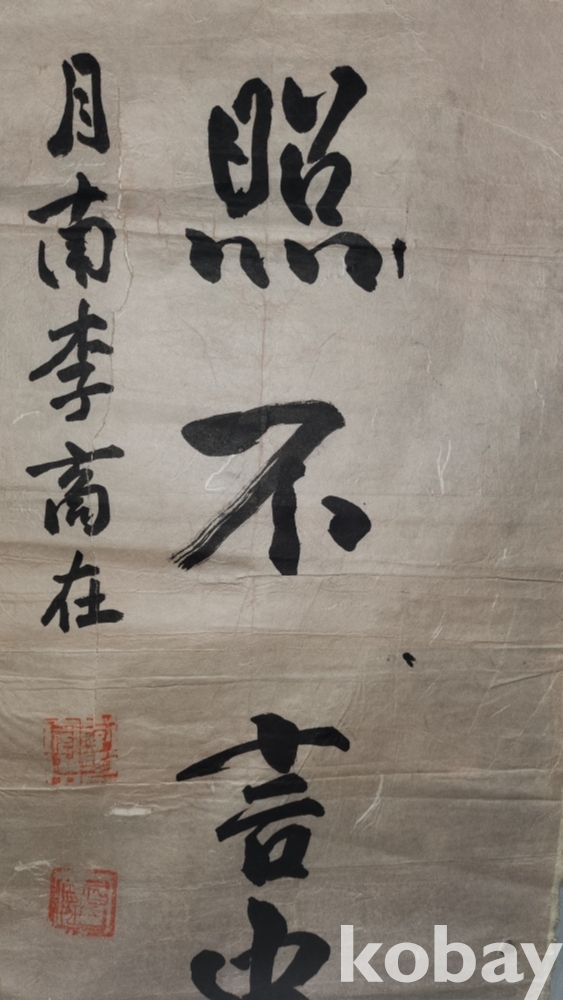 照不言中
月南李商在
kobay